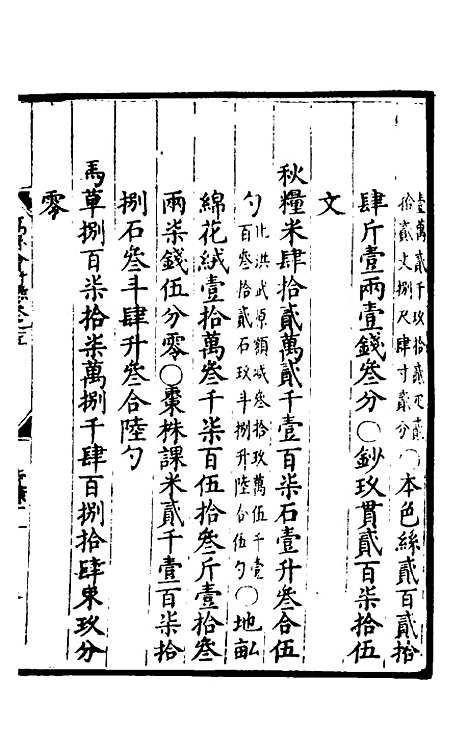 壹萬貳千玖拾貳疋貳
拾貳丈捌尺肆寸貳分〇本色絲貳百貳拾
肆斤壹兩壹錢叁分〇鈔玖貫貳百柒拾伍
文
秋糧米肆拾貳萬貳千壹百柒石壹升叁合伍
勺比洪武原額減叁拾玖萬伍千壹
百叁拾貳石玖斗捌升陸合伍勺〇地畆
綿花絨壹拾萬叁千柒百伍拾叁斤壹拾叁
兩柒錢伍分零〇棗株課米貳千壹百柒拾
捌石叁斗肆升叁合陸勺
馬草捌百柒拾柒萬捌千肆百捌拾肆束玖分
零